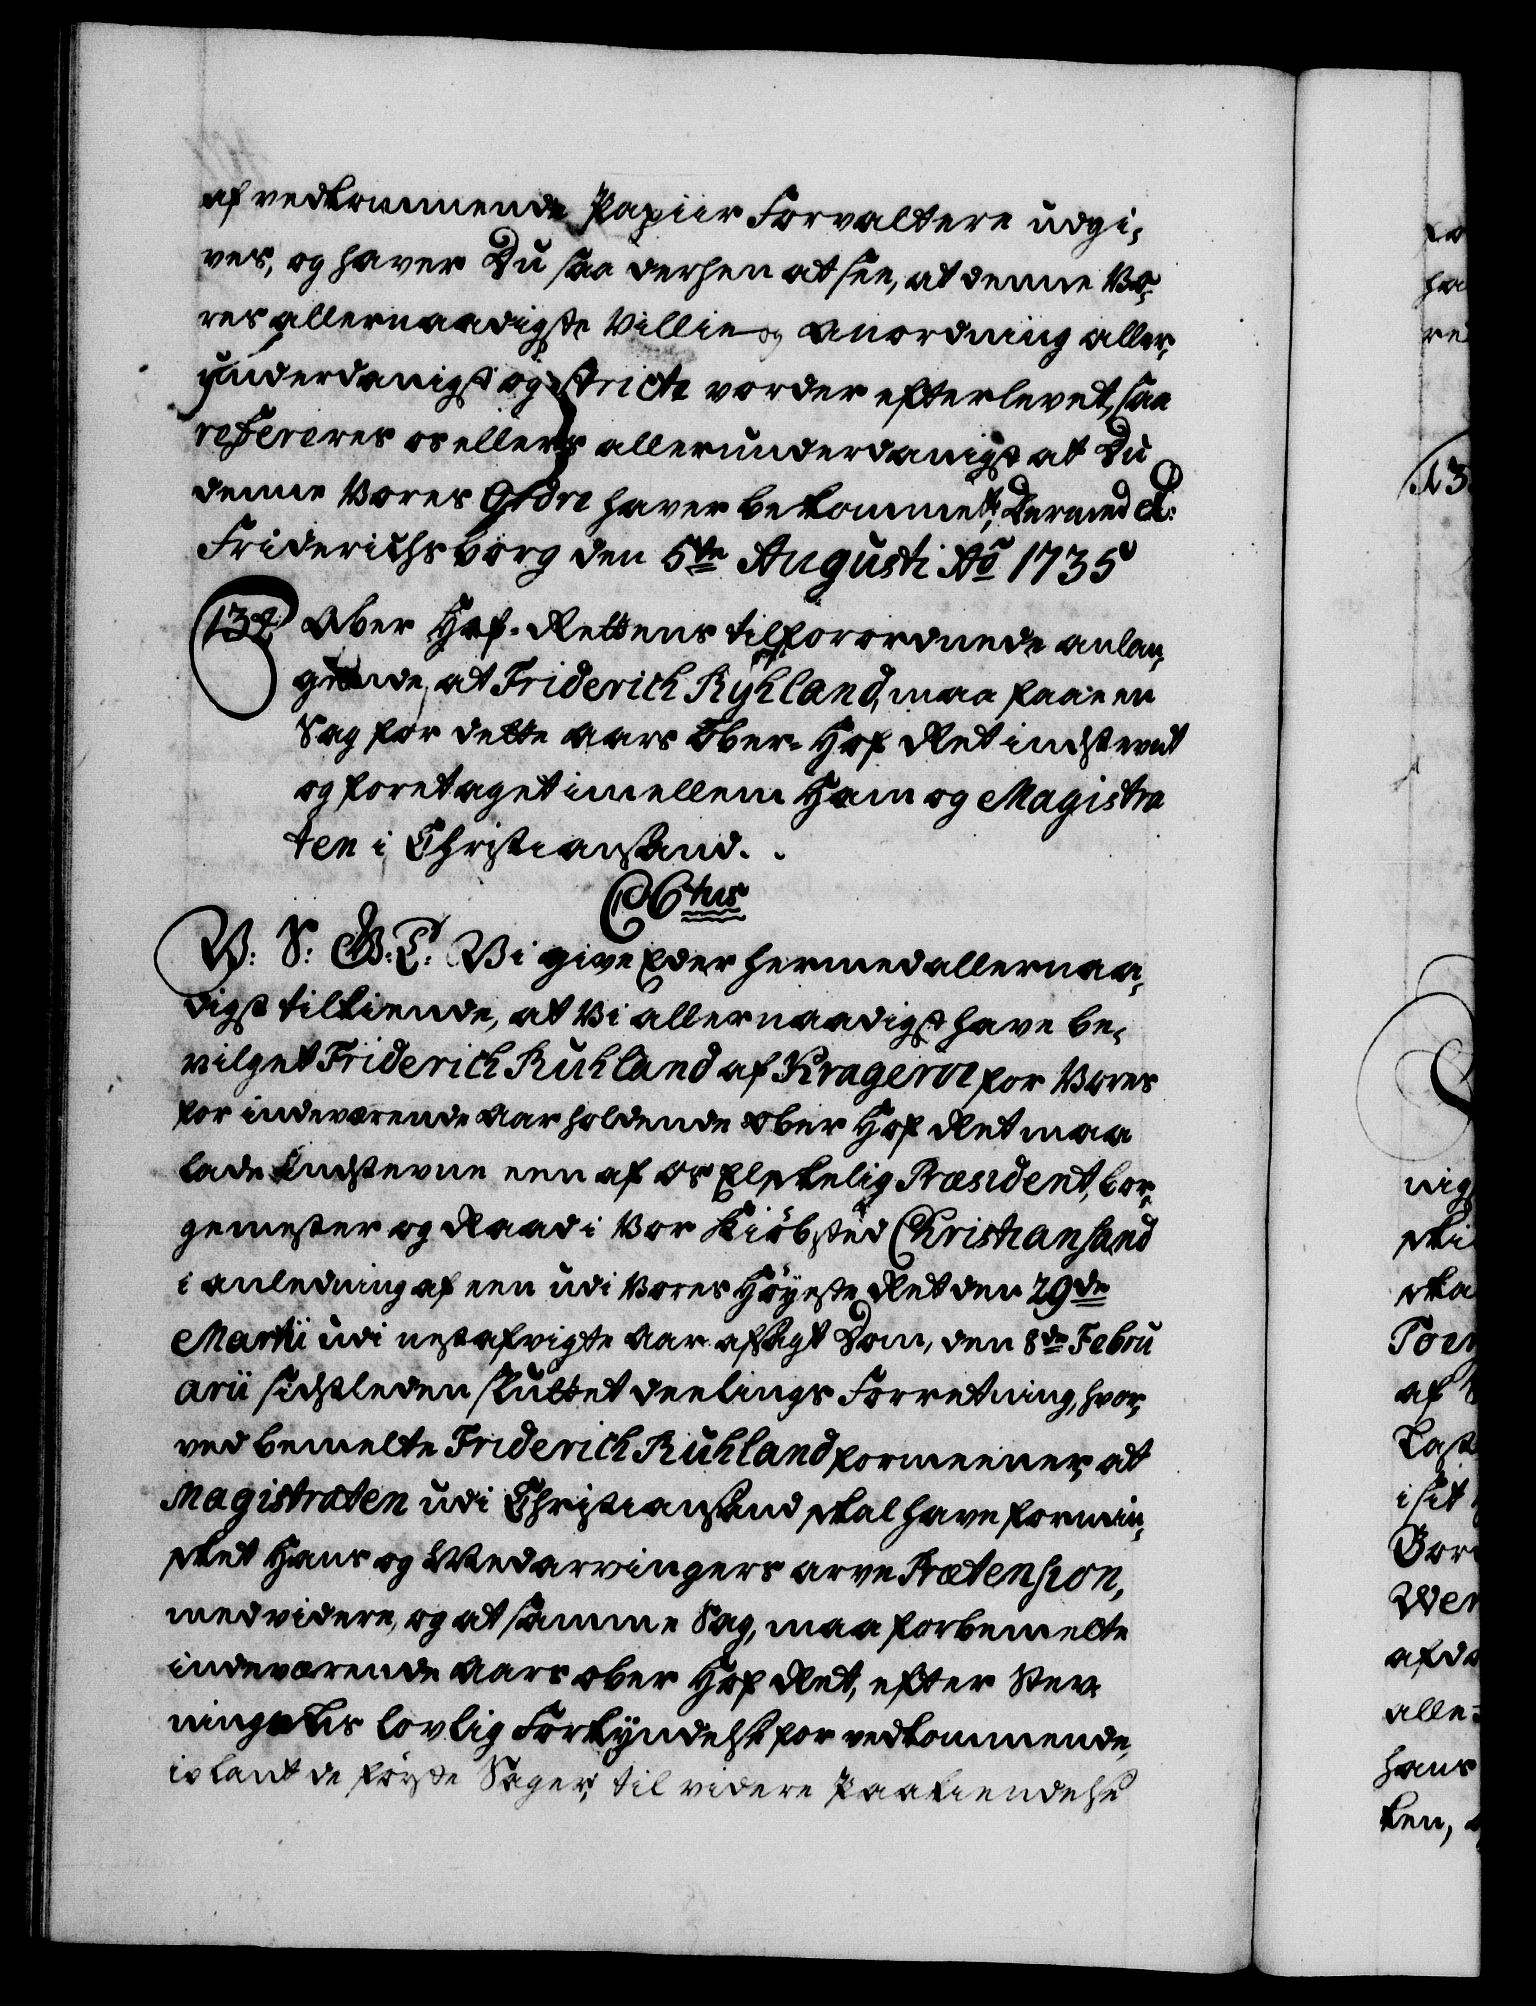 af vedkommende Papiir Forvaltere udgi-
ves, og haver Du saa derhen at see, at denne Vo-
res allernaadigste Villie og Anordning aller-
underdanigst og stricte vorder efterlevet, saa
refereres os ellers allerunderdanigst at Du
denne Vores Ordre haver bekommet, Dermed &:
Friderichsborg den 5te Augusti Ao 1735
132 Ober Hof-Rettens tilforordnede anlan-
gende, at Friderich Ryhland, maa faae en
Sag for dette Aars Ober-Hof Ret indstevnt
og foretaget imellem Ham og Magistra
ten i Christiansand.
C6tus
V: S: G: T: Vi give Eder hermed allernaa-
digst tilkiende, at Vi allernaadigst have be-
vilget Friderich Ruhland af Krageröe for Vores
for indeværende Aar holdende Ober Hof Ret maa
lade Indstevne een af Os Elskelig Præsident, Bor-
gemester og Raad i Vor Kiöbsted Christiansand
i anledning af een udi Vores Höyeste Ret den 29de
Martii udi nestafvigte Aar afsagt Dom, den 8de Febru
arii sidstleden sluttet deelings Forretning, hvor-
ved bemelte Friderich Ruhland formeener, at
Magistraten udi Christiansand skal have formin-
sket Hans og Medarvingers arve Prætension,
med videre, og at samme Sag, maa for bemelte
indeværende Aars Ober Hof Ret, efter Stev-
ningens lovlig Forkyndelse for vedkommende,
iblant de förste Sager, til videre Paakiendelse